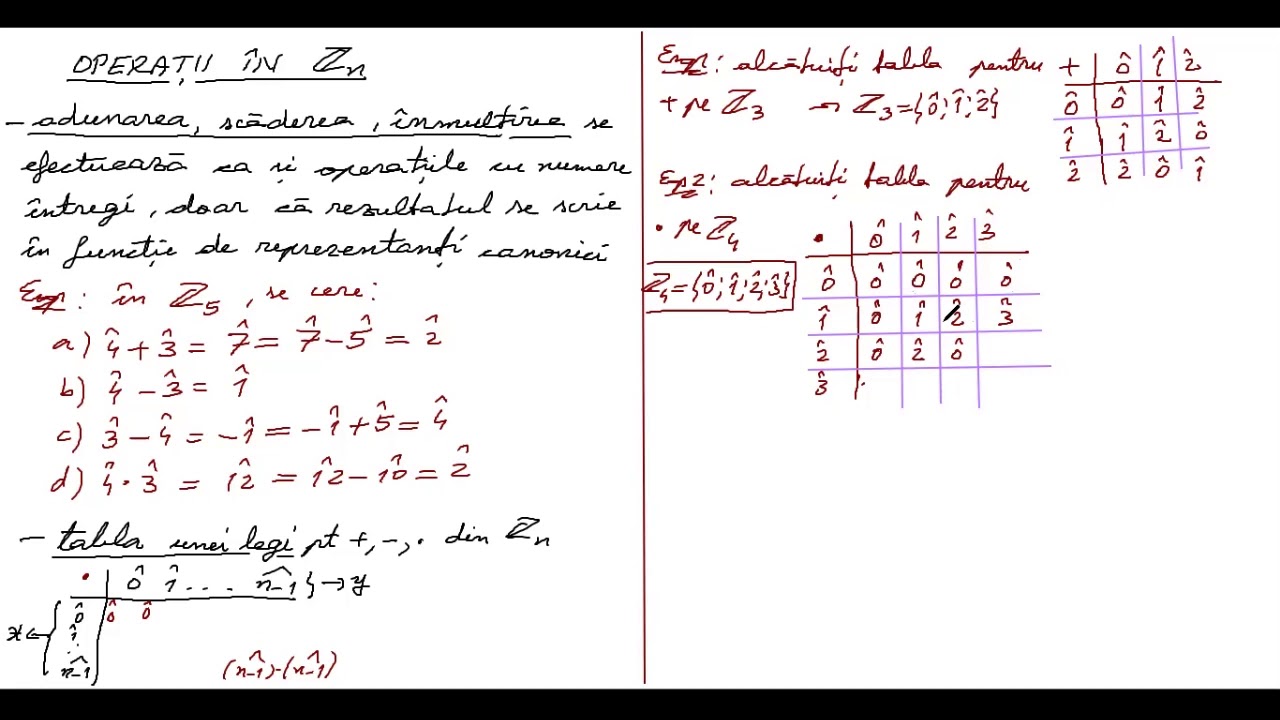 OPERAȚII ÎN ℤn
- adunarea, scăderea, înmulțirea se
efectuează ca și operațiile cu numere
întregi, doar că rezultatul se scrie
în funcție de reprezentanți canonici
Exp: în ℤ5, se cere:
a) 4̂ + 3̂ = 7̂ = 7̂ - 5̂ = 2̂
b) 4̂ - 3̂ = 1̂
c) 3̂ - 4̂ = -1̂ = -1̂ + 5̂ = 4̂
d) 4̂ · 3̂ = 1̂2 = 1̂2 - 1̂0 = 2̂
- tabla unei legi pt +, -, · din ℤn
· | 0̂ 1̂ ... n-1̂ } → y
x ← { 0̂ | 0̂ 0̂
1̂
⋮
n-1̂
(n-1̂)·(n-1̂)
Exp1: alcătuiți tabla pentru
+ pe ℤ3 → ℤ3 = {0̂; 1̂; 2̂}
+ | 0̂ 1̂ 2̂
0̂ | 0̂ 1̂ 2̂
1̂ | 1̂ 2̂ 0̂
2̂ | 2̂ 0̂ 1̂
Exp2: alcătuiți tabla pentru
· pe ℤ4
ℤ4 = {0̂; 1̂; 2̂; 3̂}
· | 0̂ 1̂ 2̂ 3̂
0̂ | 0̂ 0̂ 0̂ 0̂
1̂ | 0̂ 1̂ 2̂ 3̂
2̂ | 0̂ 2̂ 0̂
3̂ |